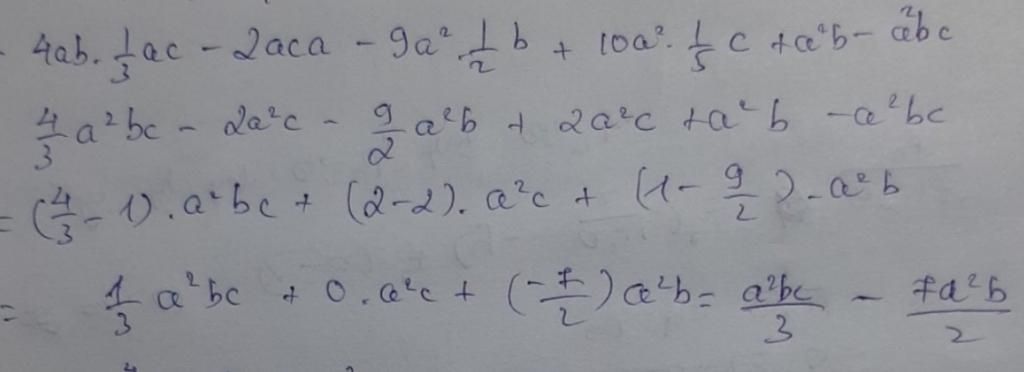 4ab. 1/3 ac - 2aca - 9a². 1/2 b + 10a². 1/5 c + a²b - a²bc
4/3 a²bc - 2a²c - 9/2 a²b + 2a²c + a²b - a²bc
= (4/3 - 1). a²bc + (2-2). a²c + (1 - 9/2). a²b
= 1/3 a²bc + 0. a²c + (-7/2) a²b = a²bc/3 - 7a²b/2